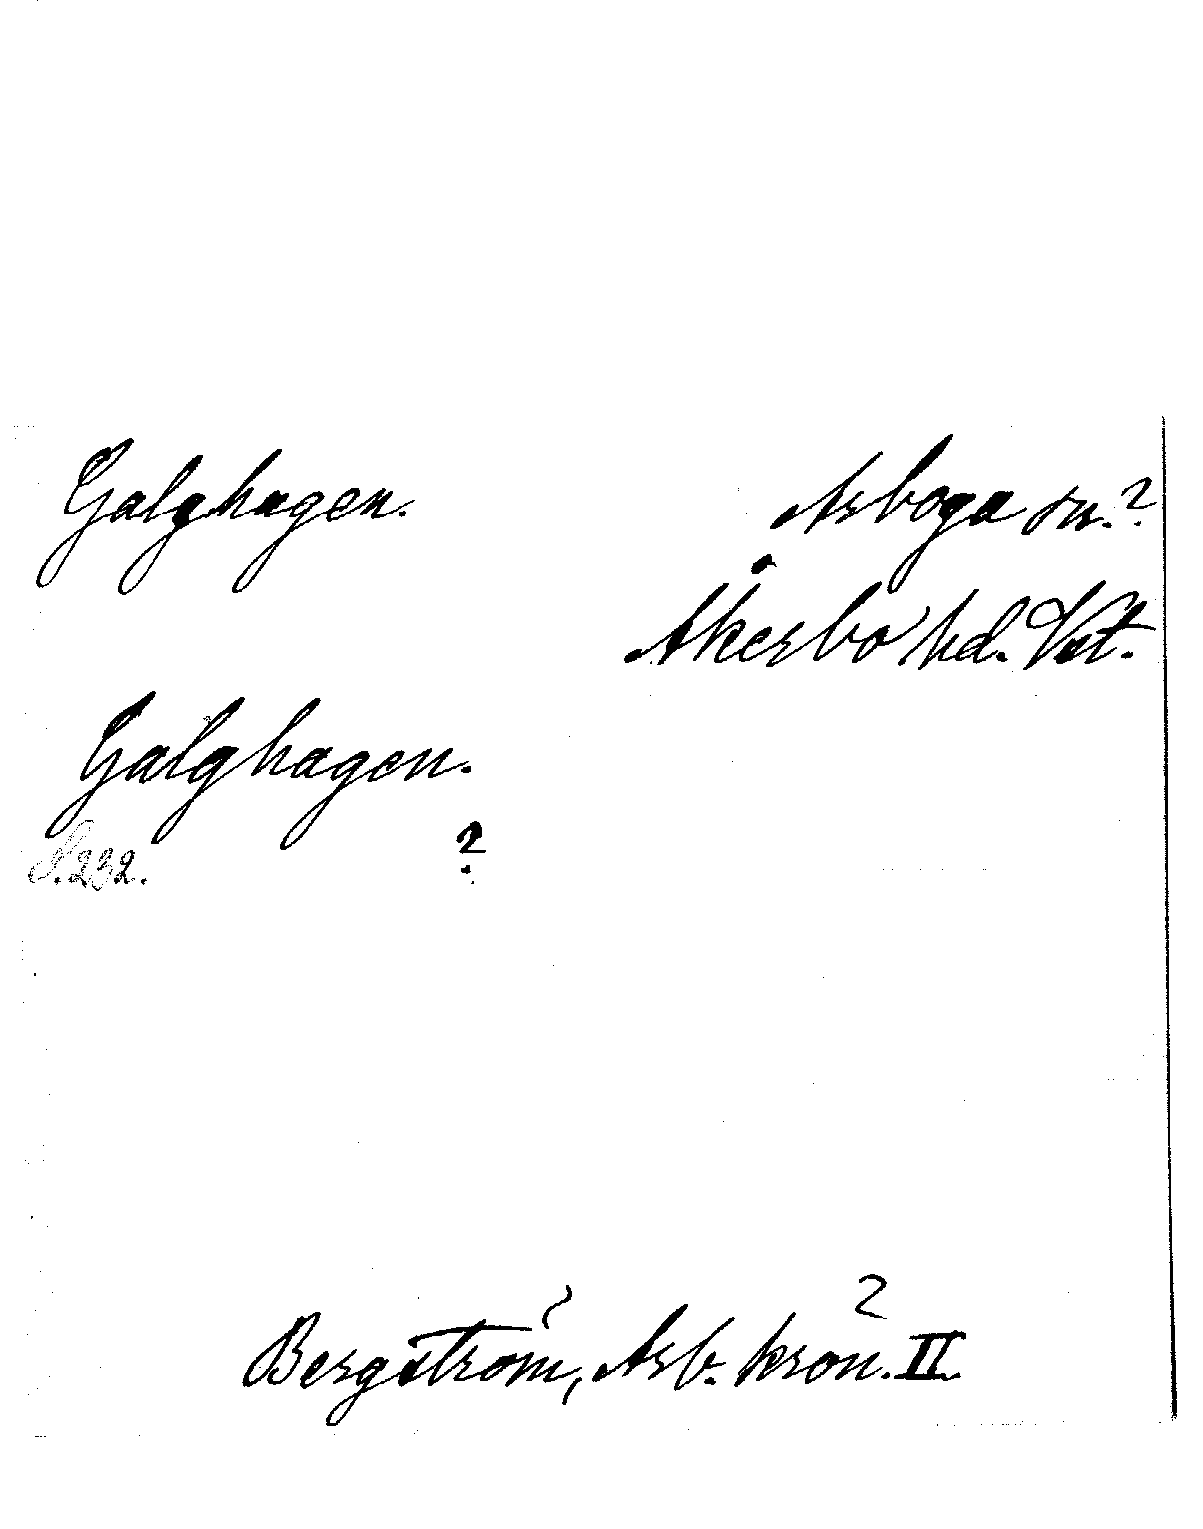 Galghagen.
Arboga sn.?
Åkerbo hd. Vst.
Galghagen.
S. 232.
?
Bergström, Arb. krön. II.